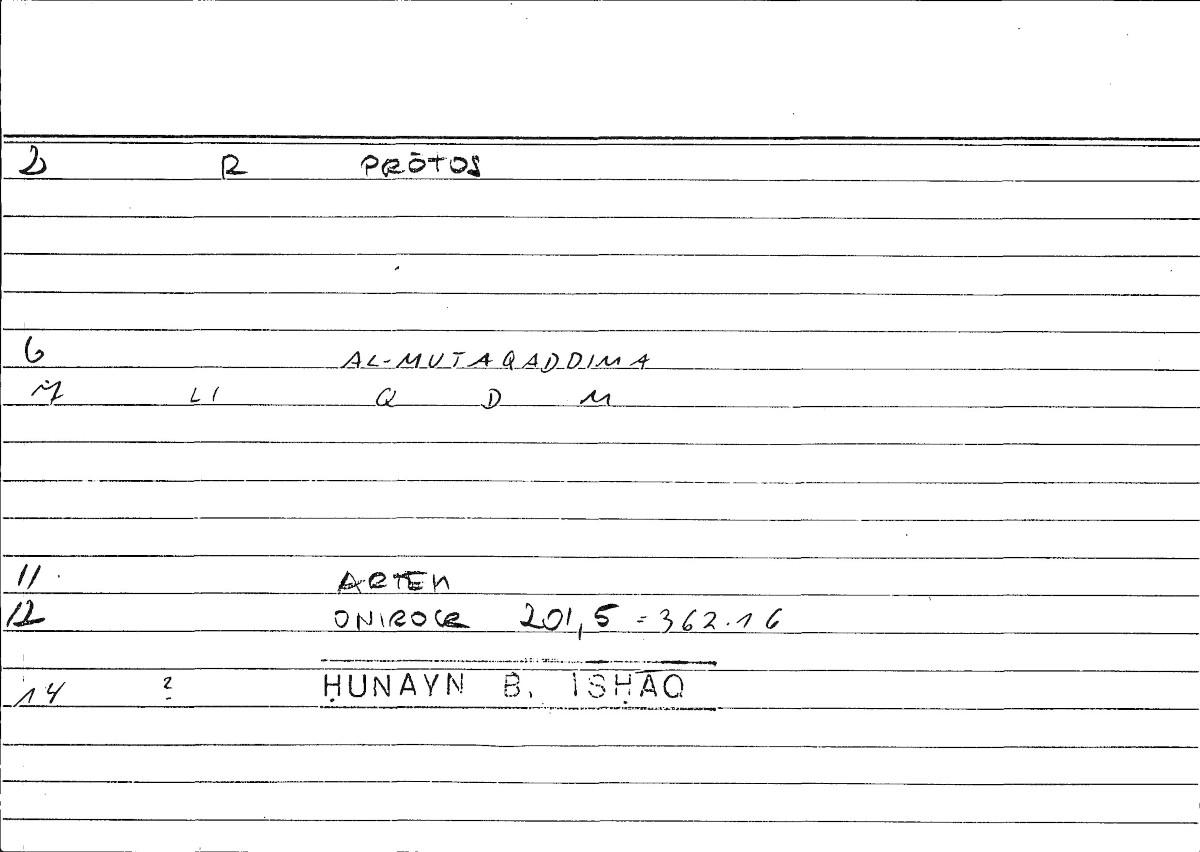 2 R PRŌTOS
6 AL-MUTAQADDIMA
7 LI Q D M
11 ARTEM
12 ONIROCR 201,5 = 362.16
14 ? ḤUNAYN B. ISḤĀQ